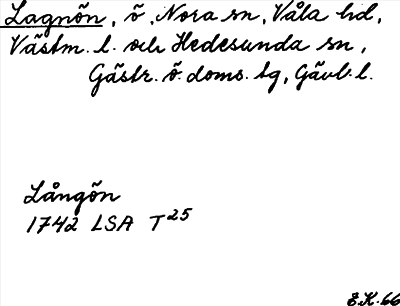 Lagnön, ö, Nora sn, Våla hd,
Västm. l. och Hedesunda sn,
Gästr. ö. doms. tg, Gävl. l.
Långön
1742 LSA T25
E.K. 66